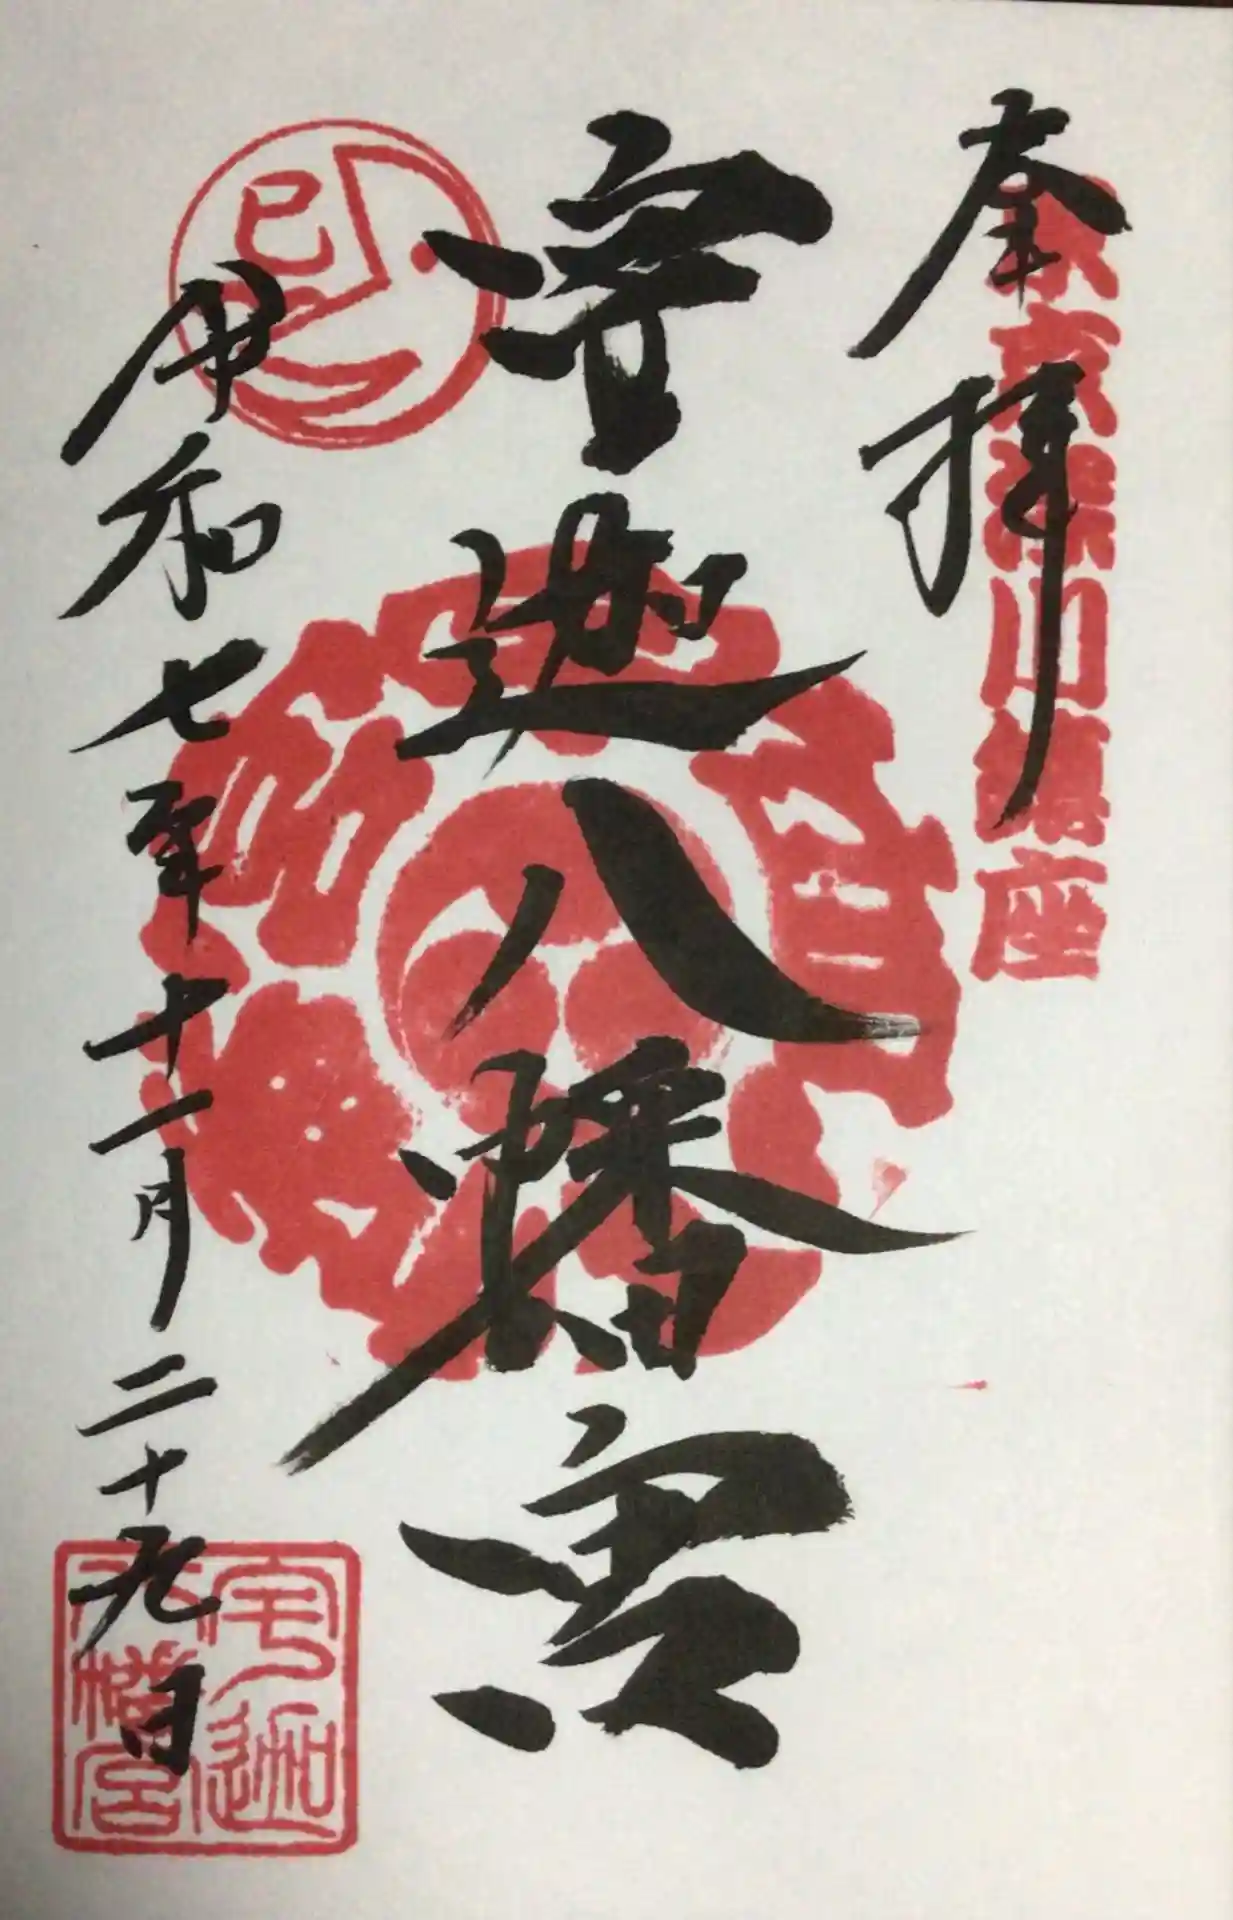 奉拝
東京深川鎮座
宇迦八幡宮
巳
令和七年十一月二十九日
宇迦
八幡宮